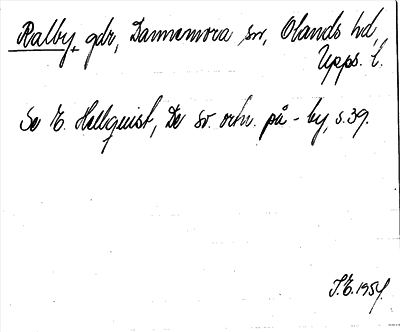 Ralby, gdr, Dannemora sn, Olands hd,
Upps. l.
Se E. Hellquist, De sv. ortn. på -by, s. 39.
J.E. 1954.